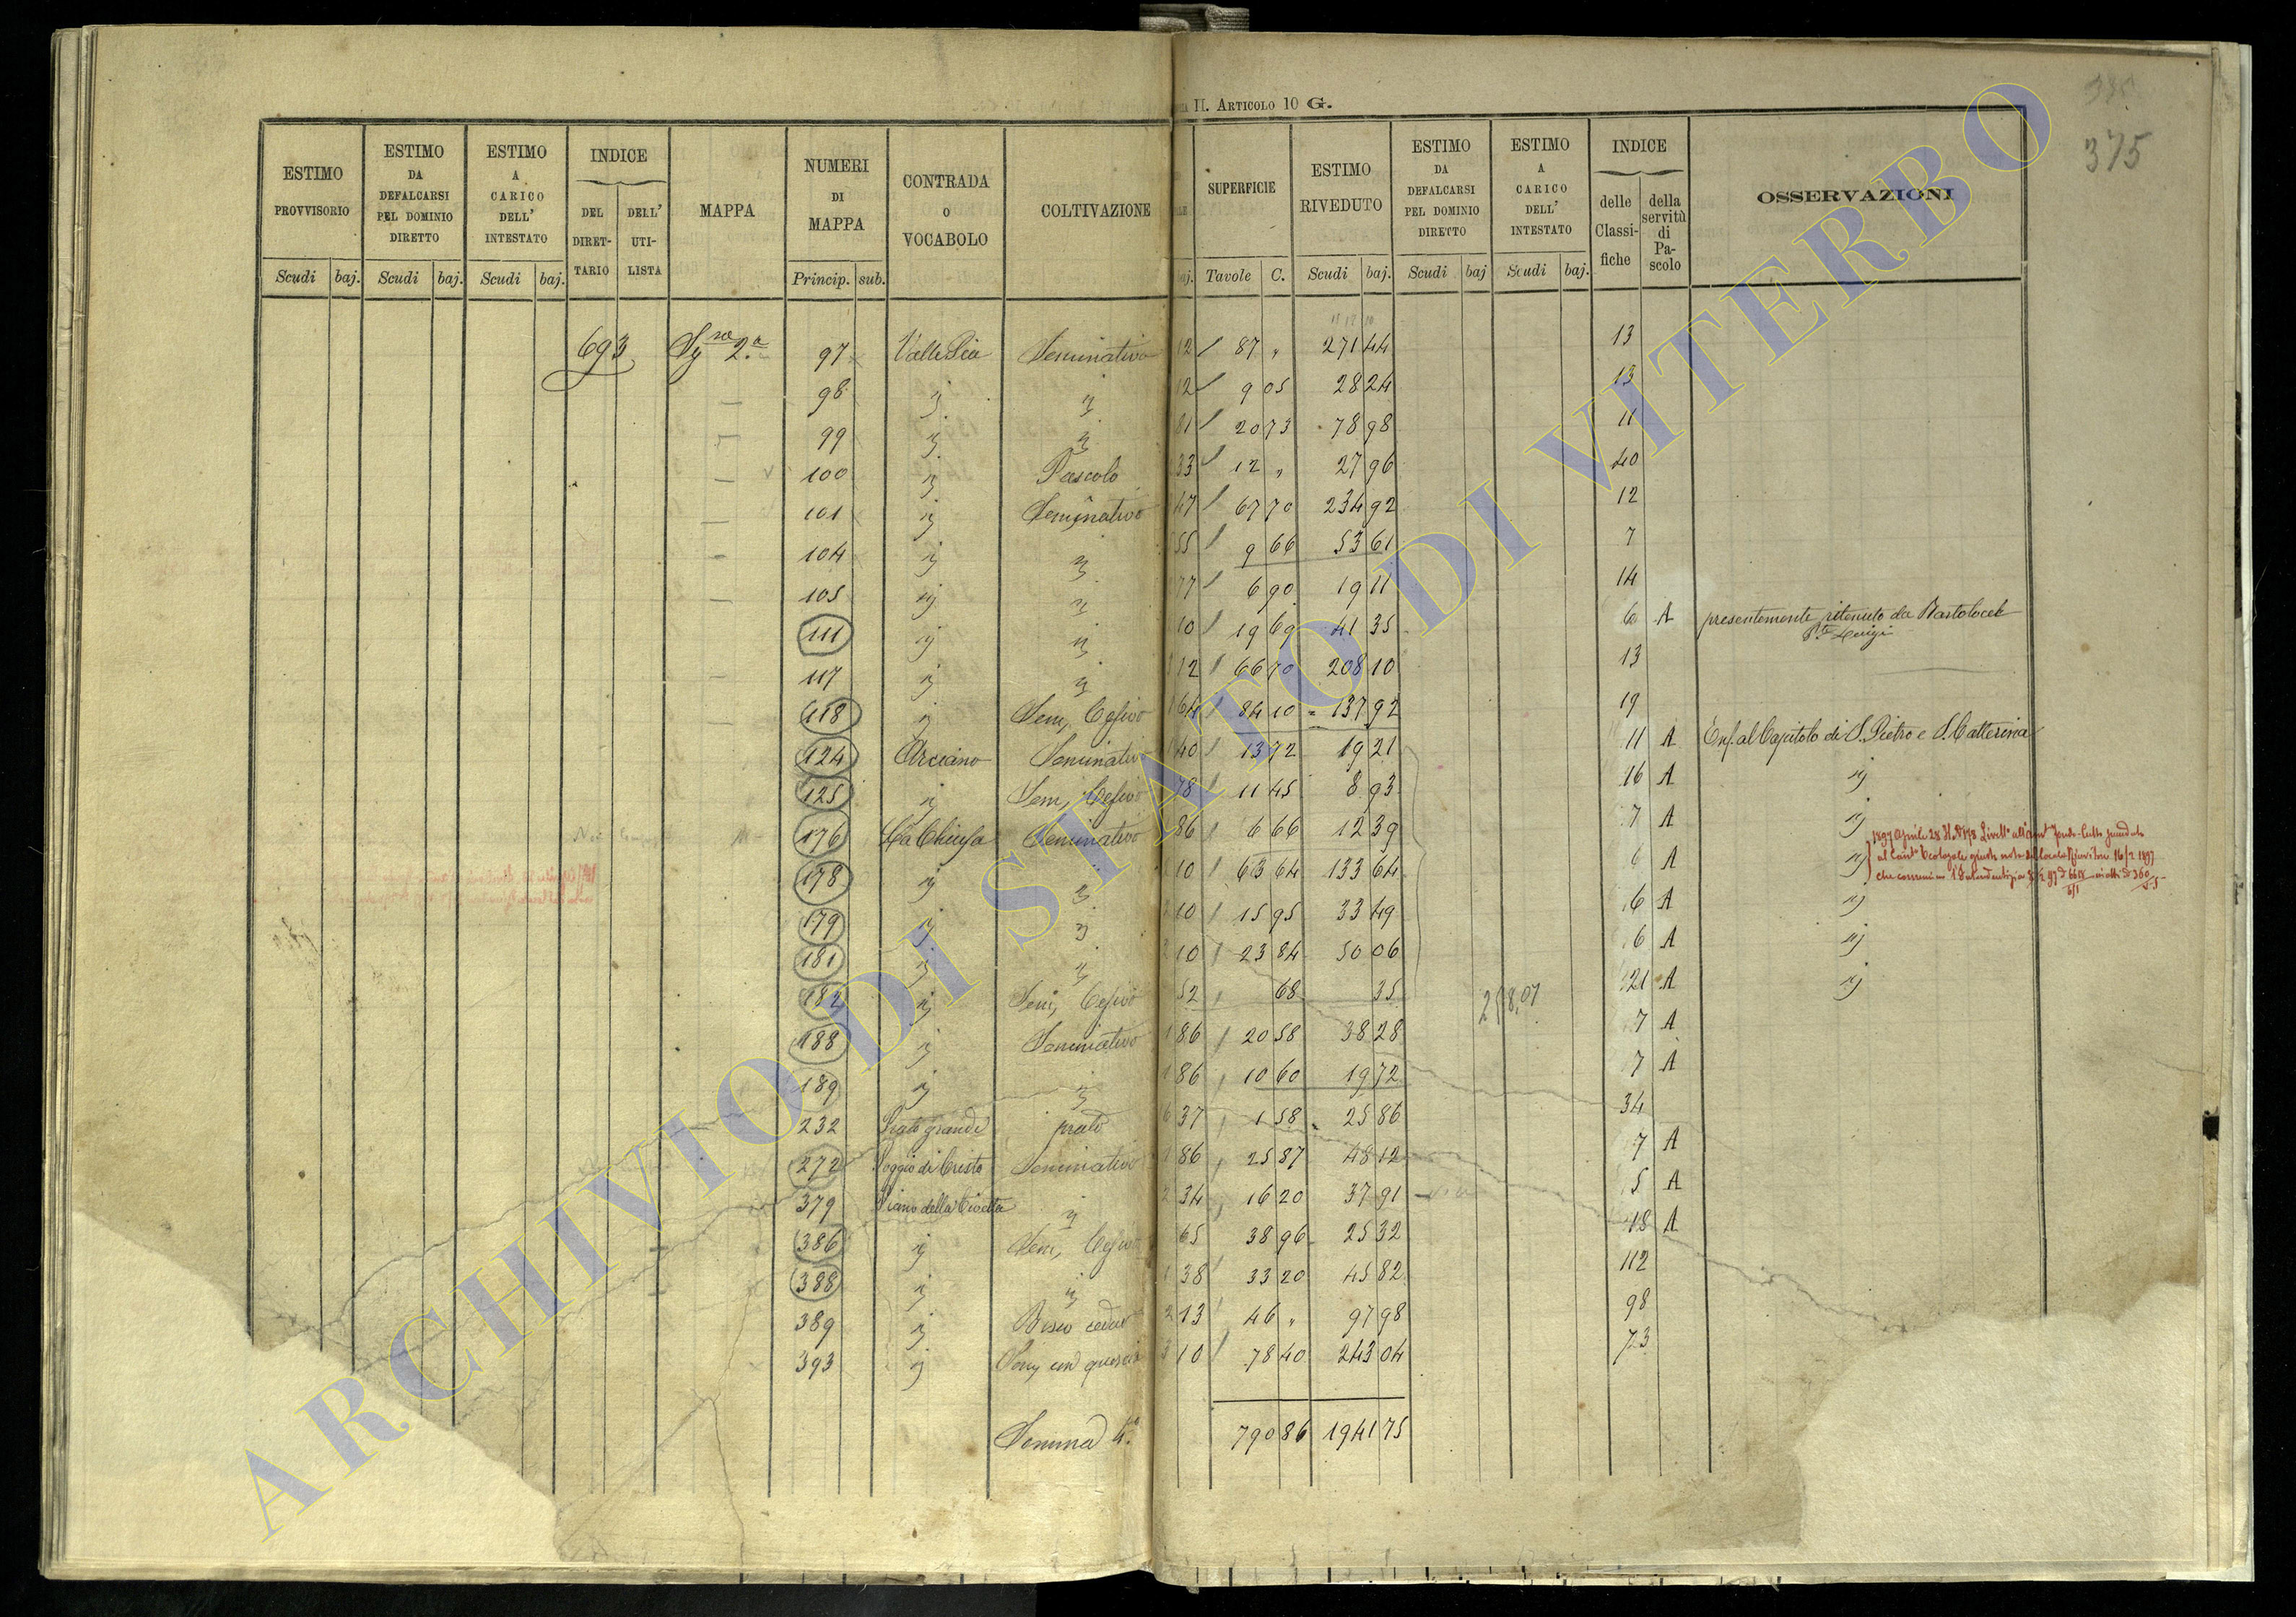 375
II. ARTICOLO 10 G.
ESTIMO PROVVISORIO | ESTIMO DA DEFALCARSI PEL DOMINIO DIRETTO | ESTIMO A CARICO DELL' INTESTATO | INDICE DEL DIRETTARIO | DELL' UTILISTA | MAPPA | NUMERI DI MAPPA | CONTRADA O VOCABOLO | COLTIVAZIONE | SUPERFICIE | ESTIMO RIVEDUTO | ESTIMO DA DEFALCARSI PEL DOMINIO DIRETTO | ESTIMO A CARICO DELL' INTESTATO | INDICE delle Classifiche | della servitù di Pascolo | OSSERVAZIONI
Scudi | baj. | Scudi | baj. | Scudi | baj. | Princip. | sub. | baj. | Tavole | C. | Scudi | baj. | Scudi | baj | Scudi | baj.
693 2.a 97 Valle Pia Seminativo 12 87 " 271 44 13
98 " " 12 9 05 28 24 13
99 " " 81 20 73 78 98 11
100 " Pascolo 33 12 " 27 96 40
101 " Seminativo 47 67 70 234 92 12
104 " " 55 9 66 53 61 7
105 " " 77 6 90 19 11 14
111 " " 10 19 69 41 35 6 A presentemente ritenuto da
Luigi
117 " " 12 66 70 208 10 13
118 " Sem, Cesivo 64 84 10 137 92 19
124 Arciano Seminativo 40 13 72 19 21 11 A Enf. al Capitolo di S. Pietro e S. Catterina
125 " Sem, Cesivo 78 11 45 8 93 16 A "
176 La Chiusa Seminativo 86 6 66 12 39 7 A "
1897 Aprile 28
178 " " 10 63 64 133 64 6 A "
179 " " 10 15 95 33 49 6 A "
181 " " 10 23 84 50 06 6 A "
182 " Sem, Cesivo 52 " 68 35 21 A "
258,07
188 " Seminativo 86 20 58 38 28 7 A
189 " " 86 10 60 19 72 7 A
232 Prato grande prato 37 1 58 25 86 34
272 Poggio di Cristo Seminativo 86 25 87 48 12 7 A
379 Piano della " 2 34 16 20 37 91 5 A
386 " Sem, Cesivo 65 38 96 25 32 18 A
388 " " 1 38 33 20 45 82 112
389 " Bosco ceduo 2 13 46 " 97 98 98
393 " 3 10 78 40 243 04 73
Somma 790 86 1941 75
ARCHIVIO DI STATO DI VITERBO